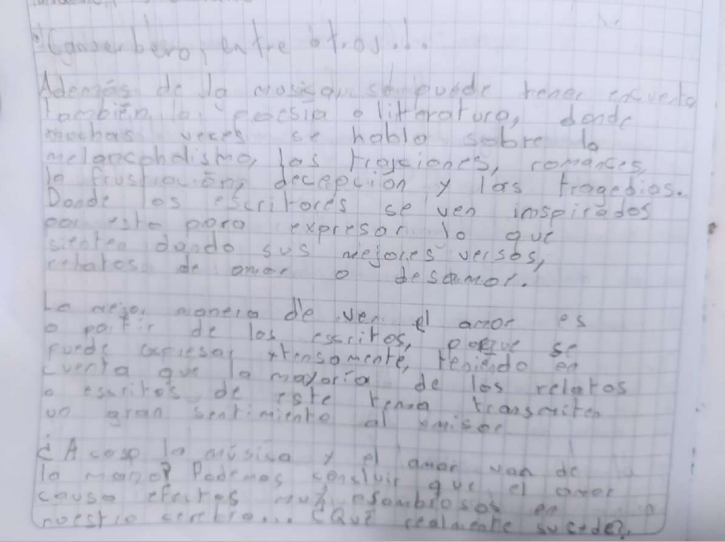 Canserbero, entre otros...
Además de la música, se puede tener en cuenta
también la poesía o literatura, donde
muchas veces se habla sobre la
melancholismo, las traiciones, romances,
la frustración, decepción y las tragedias.
Donde los escritores se ven inspirados
por esto para expresar lo que
sienten dando sus mejores versos,
relatos de amor o desamor.
La mejor manera de ver el amor es
a partir de los escritos, porque se
puede expresar extensamente, teniendo en
cuenta que la mayoría de los relatos
o escritos de este tema transmiten
un gran sentimiento al emisor
¿Acaso la música y el amor van de
la mano? Podemos concluir que el amor
causa efectos muy asombrosos en
nuestro cerebro... ¿Qué realmente sucede?